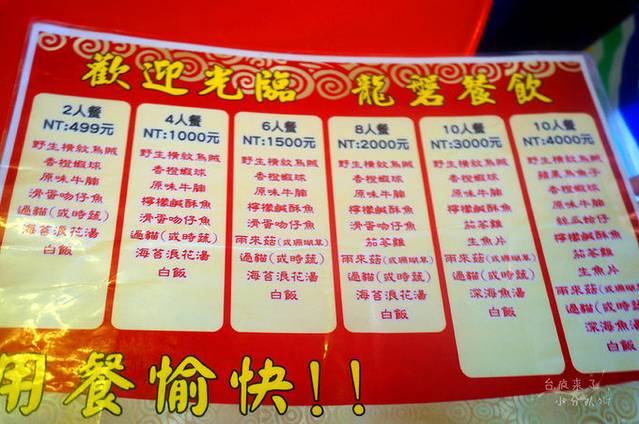 歡迎光臨 龍磐餐飲
2人餐
NT:499元
野生橫紋烏賊
香橙蝦球
原味牛腩
滑蛋吻仔魚
過貓(或時蔬)
海苔浪花湯
白飯
4人餐
NT:1000元
野生橫紋烏賊
香橙蝦球
原味牛腩
檸檬鹹酥魚
滑蛋吻仔魚
過貓(或時蔬)
海苔浪花湯
白飯
6人餐
NT:1500元
野生橫紋烏賊
香橙蝦球
原味牛腩
檸檬鹹酥魚
滑蛋吻仔魚
雨來菇(或珊瑚草)
過貓(或時蔬)
海苔浪花湯
白飯
8人餐
NT:2000元
野生橫紋烏賊
香橙蝦球
原味牛腩
檸檬鹹酥魚
滑蛋吻仔魚
茄苳雞
雨來菇(或珊瑚草)
過貓(或時蔬)
海苔浪花湯
白飯
10人餐
NT:3000元
野生橫紋烏賊
香橙蝦球
原味牛腩
檸檬鹹酥魚
茄苳雞
生魚片
雨來菇(或珊瑚草)
過貓(或時蔬)
深海魚湯
白飯
10人餐
NT:4000元
野生橫紋烏賊
蘋果烏魚子
香橙蝦球
原味牛腩
檸檬鹹酥魚
茄苳雞
生魚片
雨來菇(或珊瑚草)
過貓(或時蔬)
深海魚湯
白飯
用餐愉快!!
台疯来了